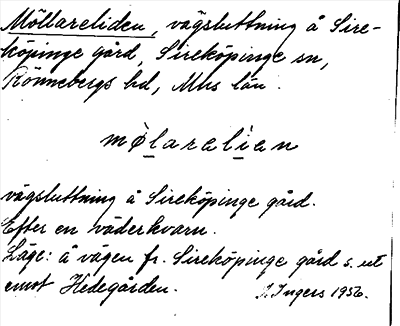 Möllareliden, vägsluttning å Sire-
köpinge gård, Sireköpinge sn,
Rönnebergs hd, Mhs län.
mølarelien
vägsluttning å Sireköpinge gård.
Efter en väderkvarn.
Läge: å vägen fr. Sireköpinge gård s. ut
emot Hedegården.
I. Ingers 1956.